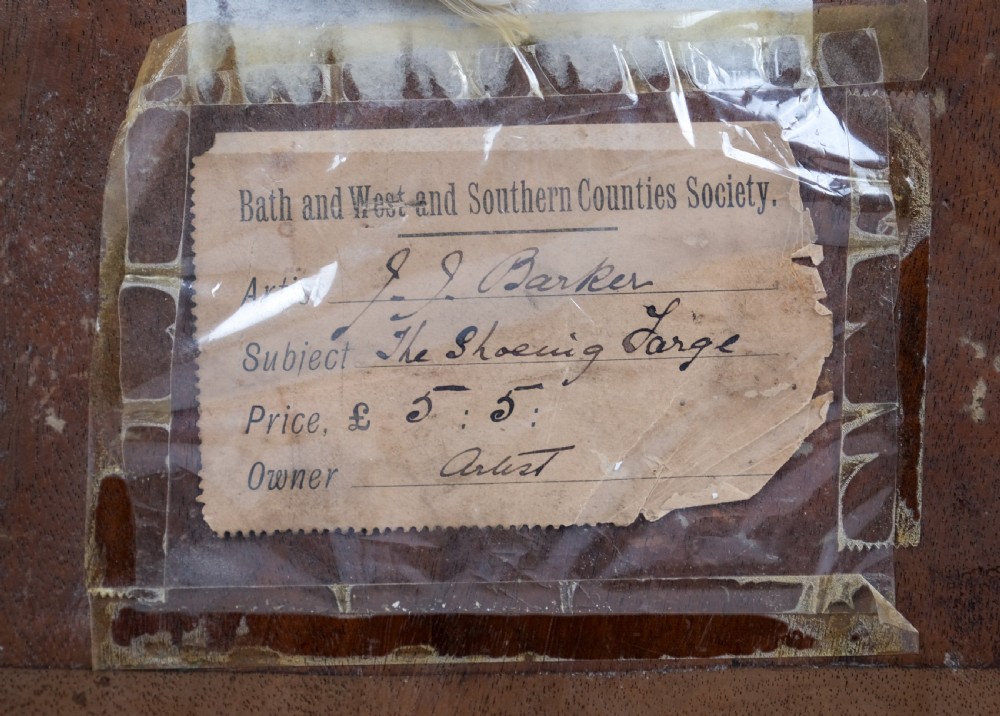 Bath and West and Southern Counties Society.
Artist J. J. Barker
Subject The Shoeing Forge
Price, £ 5 : 5 :
Owner Artist